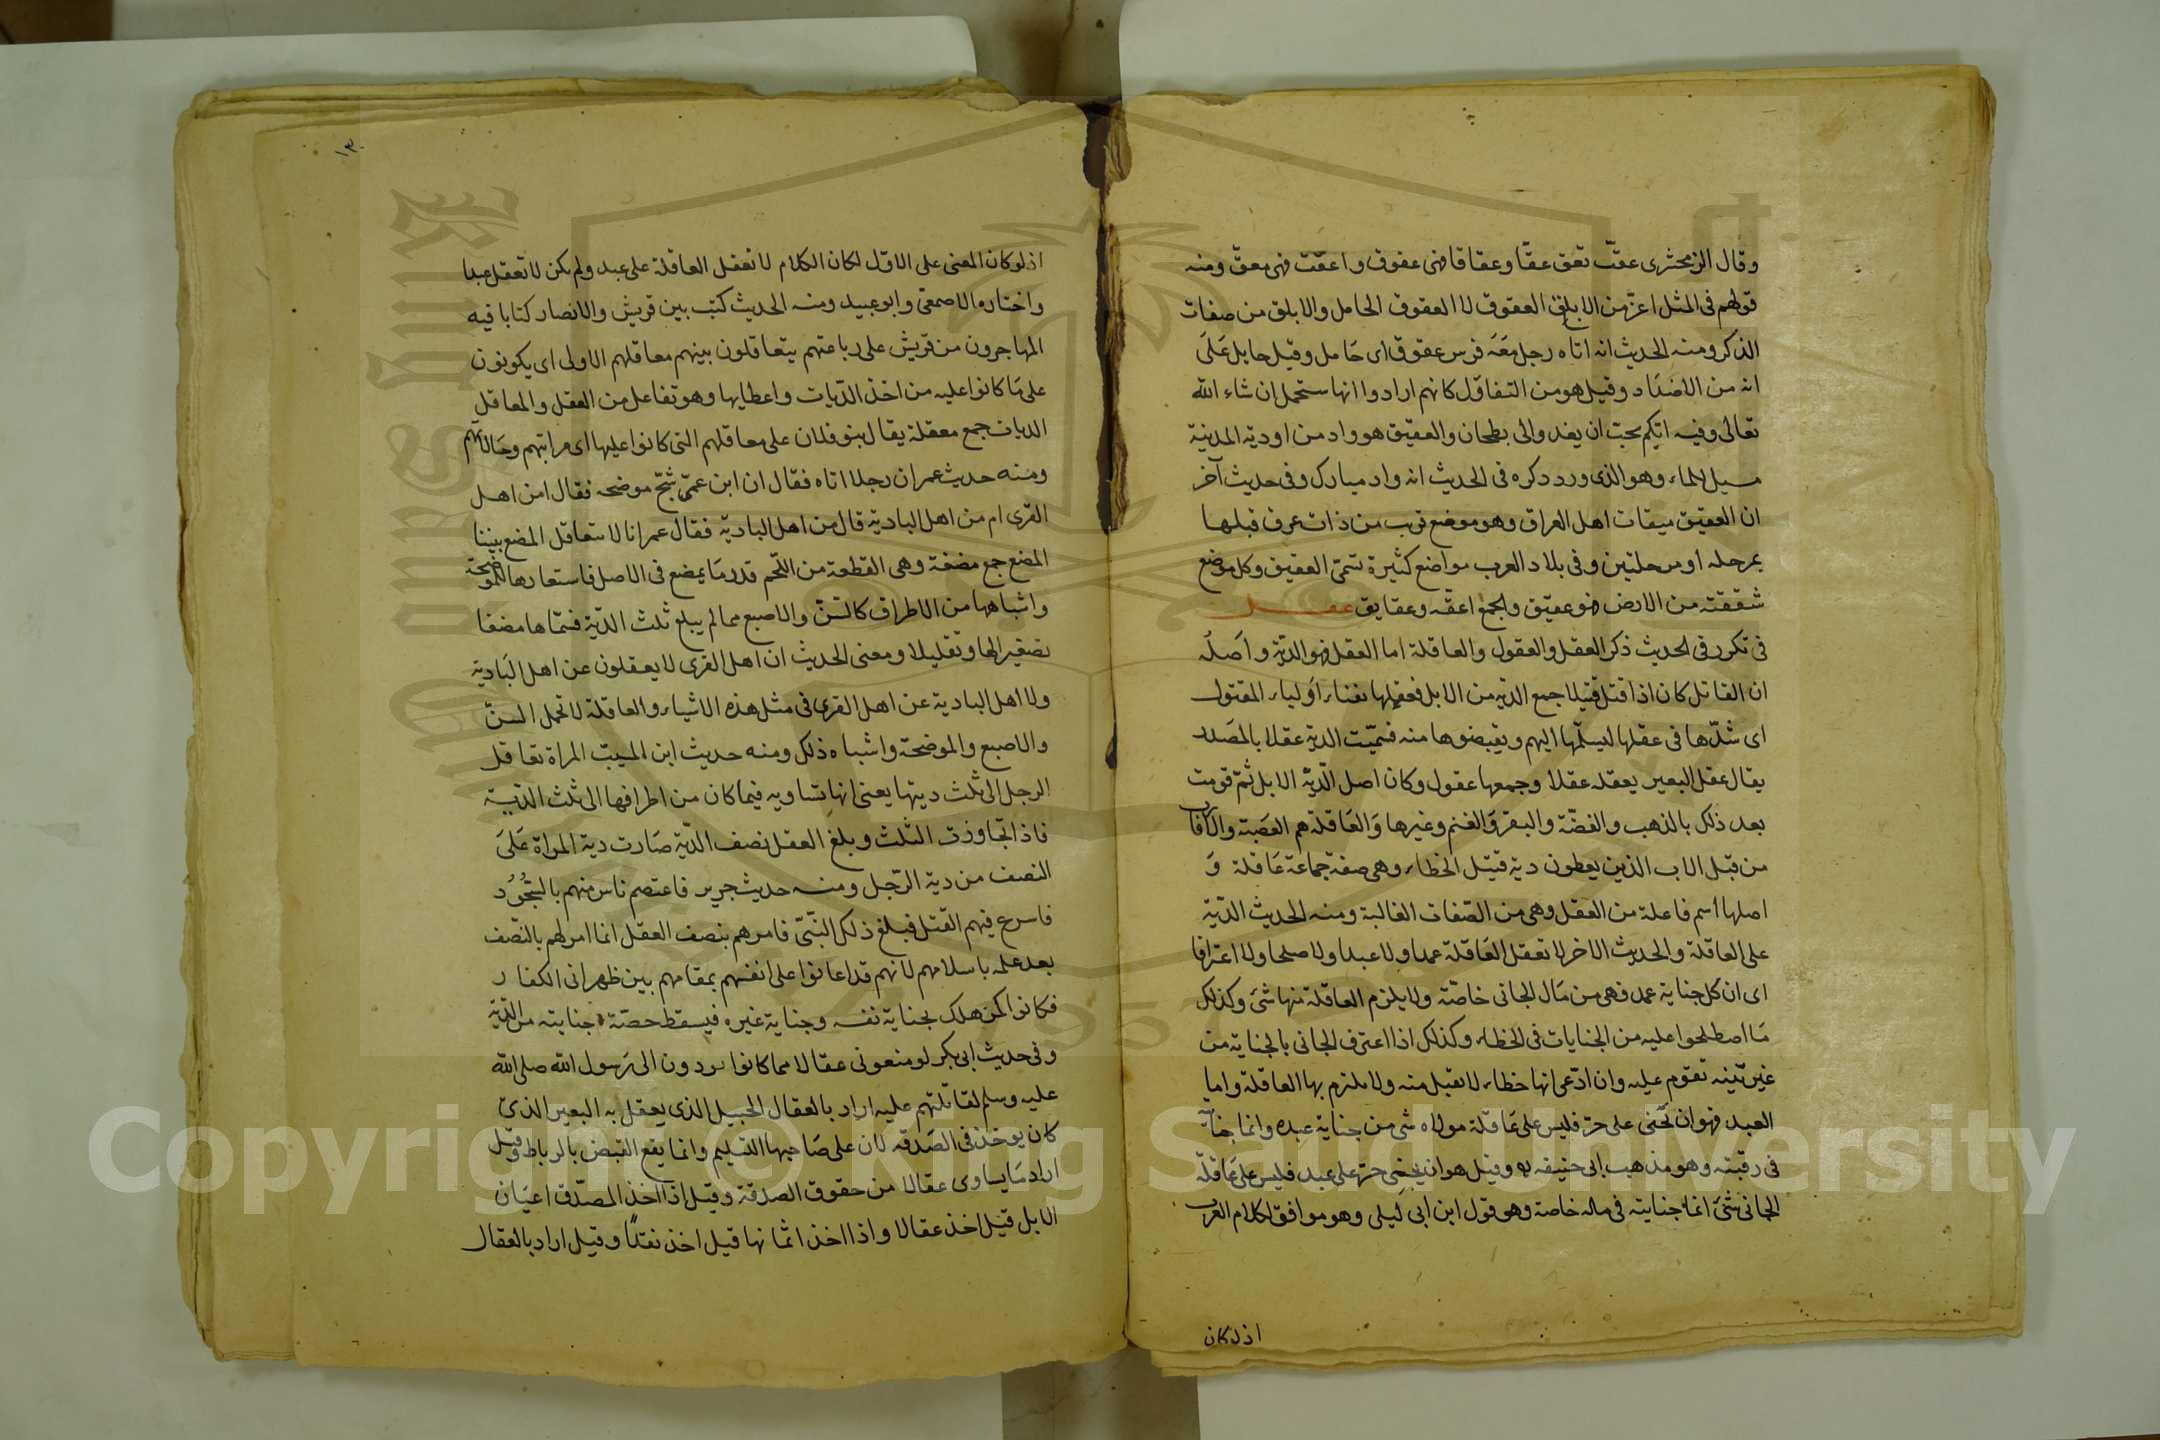 وقال الزمخشرى عقّت تعق عقّا وعقاقا فهى عقوق واعقت فهى معقّ ومنه
قولهم فى المثل اعزّ من الابلق العقوق لا العقوق الحامل والابلق من صفات
الذكر ومنه الحديث انه اتاه رجل مَعَه فرس عقوق اى حَامل وقيل حايل عَلَى
انه من الاضدَاد وقيل هو من التفاؤل كانهم ارادوا انها ستحمل ان شاء الله
تعالى وفيه ايكم يحبّ ان يغد والى بطحان والعقيق هو واد من اودية المدينة
مسيل للماء وهو الذى ورد ذكره فى الحديث انه واد مبارك وفى حديث آخر
ان العقيق ميقات اهل العراق وهو موضع قرب من ذات عرق قبلها
بمرحله او مرحلتين وفى بلاد العرب مواضع كثيرة تسمّى العقيق وكل موضع
شققته من الارض فهو عقيق والجمع اعقّه وعقايق عقل
فى تكرر فى الحديث ذكر العقل والعقول والعاقلة اما العقل فهو الديّة واَصله
ان القاتل كان اذا قتل قتيلا جمع الدية من الابل فعقلها بفناء اَولياء المقتول
اى شدّها فى عقلها ليسلّمها اليهم ويقبضوها منه فسميّت الدية عقلا بالمصَدر
يقال عقل البعير يعقله عقلا وجمعها عقول وكان اصل الدّيّة الابل ثمّ قومت
بعد ذلك بالذهب والفضّة والبقر وَالغنم وغيرها وَالعَاقلة هم العَصَبة والاقارب
من قبل الاب الذين يعطون دية قتيل الخطاء وهى صفة جماعة عَاقلة وَ
اصلها اسم فاعلة من العقل وهى من الصّفات الغالبة ومنه الحديث الديّة
على العاقلة والحديث الاخر لا تعقل العَاقلة عمدا ولا عبدا ولا صلحا ولا اعترافا
اى ان كل جناية عمد فهى من مَال الجانى خاصّة ولا يلزم العاقلة منها شئ وكذلك
مَا اصطلحوا عليه من الجنايات فى الخطاء وكذلك اذا اعترف الجانى بالجناية من
غير بيّنه تقوم عليه وان ادّعى انها خطاء لا تقبل منه ولا يلزم بها العاقلة واما
العبد فهو ان يَجنى على حرّ فليس على عَاقلة مولاه شى من جناية عبده وانما جنايته
فى رقبته وهو مذهب ابى حنيفه وقيل هو ان يجنى حرّ على عبد فليس على عَاقلة
الجانى شئَ انما جنايته فى ماله خاصة وهو قول ابن ابى ليلى وهو موافق لكلام العرب
اذ لو كان
١٣٠
اذ لو كان المعنى على الاوّل لكان الكلام لا تعقل العاقلة على عبد ولم يكن لا تعقل عبدا
واختاره الاصمعى وابو عبيد ومنه الحديث كتب بين قريش والانصار كتابا فيه
المهاجرون من قريش على رباعتهم يتعاقلون بينهم معاقلهم الاولى اى يكونون
على مَا كانوا عليه من اخذ الدّيات واعطايها وهو تفاعل من العقل والمعاقل
الديات جمع معقلة يقال بنو فلان على معاقلهم التى كانوا عليها اى مراتبهم وحَالاتهم
ومنه حديث عمر ان رجلا اتاه فقال ان ابن عمّى شجّ موضحه فقال امن اهل
القرى ام من اهل البادية قال من اهل البادية فقال عمر انا لا نتعاقل المضغ بيننا
المضغ جمع مضغة وهى القطعة من اللّحم قدر مَا يمضغ فى الاصل فاستعارها للموضحة
واشباهها من الاطراف كالسّن والاصبع مما لم يبلغ ثلث الديّة فسمّاها مضغا
تصغيرا لها وتقليلا ومعنى الحديث ان اهل القرى لا يعقلون عن اهل البَادية
ولا اهل البادية عن اهل القرى فى مثل هذه الاشياء والعاقلة لا تحمل السنّ
والاصبع والموضحة واشباه ذلك ومنه حديث ابن المسيّب المراة تعاقل
الرجل الى ثلث ديتها يعنى انها تساويه فيما كان من اطرافها الى ثلث الديّة
فاذا تجاوزت الثلث وبلغ العقل نصف الدّيّة صَارت دية المراة عَلىَ
النصف من دية الرّجل ومنه حديث جرير فاعتصم ناس منهم بالسُّجُوُد
فاسرع فيهم القتل فبلغ ذلك النّبّى فامرهم بنصف العقل انما امر لهم بالنّصف
بعد علمه باسلامهم لانهم قد اعانوا على انفسهم بمقامهم بين ظهرانى الكفار
فكانوا كمن هلك بجناية نفسه وجناية غيره فيسقط حصّة جنايته من الدّيّة
وفى حديث ابى بكر لو منعونى عقالا مما كانوا يردون الى رَسول الله صلى الله
عليه وسلم لقاتلتهم عليه اراد بالعقال الحبيل الذى يعقل به البعير الذى
كان يوخذ فى الصَدقه لان على صَاحبها التسليم وانما يقع القبض بالرباط وقيل
اراد مَا يساوى عقالا من حقوق الصدقة وقيل اذا اخذ المصدّق اعيَان
الابل قيل اخذ عقالا واذا اخذ اثمانها قيل اخذ نقدًا وقيل اراد بالعقال
Copyright © King Saud University